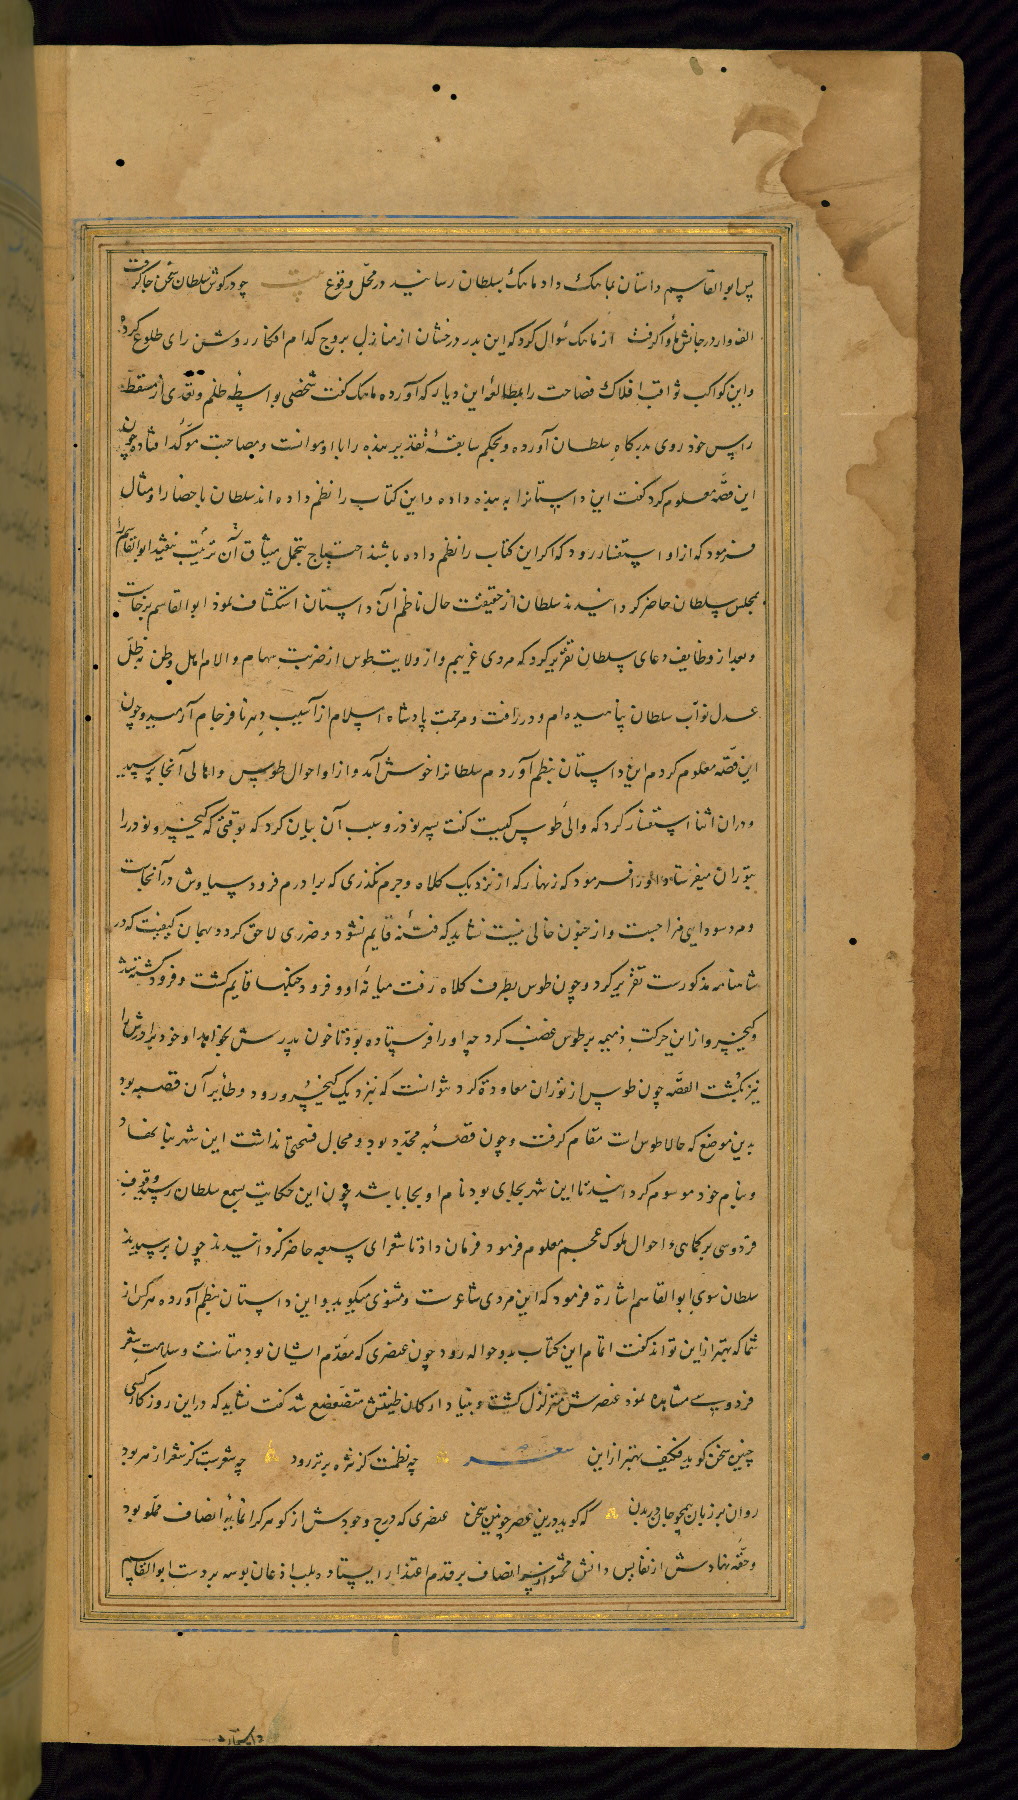 پس ابوالقاسم داستان بماهک داد ماهک بسلطان رسانید در محل وقوع بیت چو در کوش سلطان سخن جا کرفت
الف وار در جانش مأوا کرفت از ماهک سؤال کرد که این بدر درخشان از منازل بروج کدام افکار روشن رای طلوع کرده
واین کواکب ثواقب افلاک فصاحت را بمطالعهٔ این دیار که آورده ماهک کفت شخصی بواسطهٔ ظلم وتعدی از مسقط
راس خود روی بدرکاه سلطان آورده وبحکم سابقهٔ تقدیر بنده را با او موانست ومصاحبت مؤکد افتاده چون
این قصه معلوم کرد کفت این داستانرا به بنده داده واین کتاب را نظم داده اند سلطان باحضار او مثال
فرمود که از او استفسار رود که اکر این کتاب را نظم داده باشند احتیاج بتحمل میثاق آن ترتیب نیفتد ابوالقاسم را
بمجلس سلطان حاضر کردانیدند سلطان از حقیقت حال ناظم آن داستان استکشاف نمود ابوالقاسم برخاست
وبعد از وظایف دعای سلطان تقریر کرد که مردی غریبم واز ولایت طوس از ضربت سهام والام اهل وطن بظل
عدل نواب سلطان پناهیده ام ودر رافت ومرحمت پادشاه اسلام از آسیب دهر نافرجام آرمیده وچون
این قصه معلوم کردم این داستان بنظم آوردم سلطانرا خوش آمد واز او احوال طوس واهالی آنجا پرسید
ودران اثنا استفسار کرد که والی طوس کیست کفت پسر نوذر وسبب آن بیان کرد که بوقتی که کیخسرو نوذر را
بتوران میفرستاد اورا فرمود که زنهار که از نزدیک کلاه وجرم نکذری که برادرم فرود سیاوش در آنجاست
ومرد سودایی مزاجست واز جنون خالی نیست نشاید که فتنه قایم نشود وضرری لاحق کردد بهمان کیفیت که در
شاهنامه مذکورست تقریر کرد وچون طوس بطرف کلاه رفت میانهٔ او وفرود جنکها قایم کشت وفرود کشته شد
وکیخسرو از این حرکت ذمیمه بر طوس غضب کرد چه اورا فرستاده بود تا خون پدرش بخواهد او خود برادرش را
نیز بکشت القصه چون طوس از توران معاودة کرد نتوانست که نزدیک کیخسرو رود وطابر آن قصبه بود
بدین موضع که حالا طوس است مقام کرفت وچون قصبهٔ محدد بود ومجال فسحتی نداشت این شهر بنا نهاد
وبنام خود موسوم کردانید تا این شهر بجای بود نام او بجا باشد چون این حکایت بسمع سلطان رسید وقوف
فردوسی بر کماهیء احوال ملوک عجم معلوم فرمود فرمان داد تا شعرای سبعه حاضر کردانیدند چون برسیدند
سلطان سوی ابوالقاسم اشارة فرمود که این مردی شاعرست ومثنوی میکوید واین داستان بنظم آورده هرکس از
شما که بهتر از این تواند کفت اتمام این کتاب بدو حواله رود چون عنصری که مقدم ایشان بود متانت وسلامت شعر
فردوسی مشاهده نمود عنصرش متزلزل کشت وبنیاد ارکان طینتش متضعضع شد کفت نشاید که دراین روزکار کسی
چنین سخن کوید فکیف بهتر از این شعر چه نظمت کز نثره برتر رود چه شعرست کز شعر از هر بود
روان بر زبان همچو جان در بدن که کوید درین عصر چونین سخن عنصری که درج وجودش از کوهر کرانمایهٔ انصاف مملو بود
وحقه نهادش از نفایس دانش محشو از سر انصاف بر قدم اعتذار ایستاد وبلب اذعان بوسه بر دست ابوالقاسم